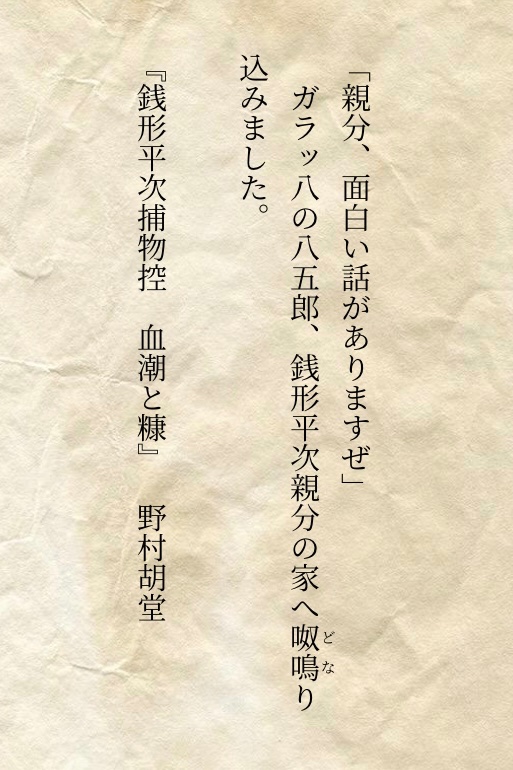 「親分、面白い話がありますぜ」
ガラッ八の八五郎、銭形平次親分の家へ呶鳴り
どな
込みました。
『銭形平次捕物控　血潮と糠』　野村胡堂